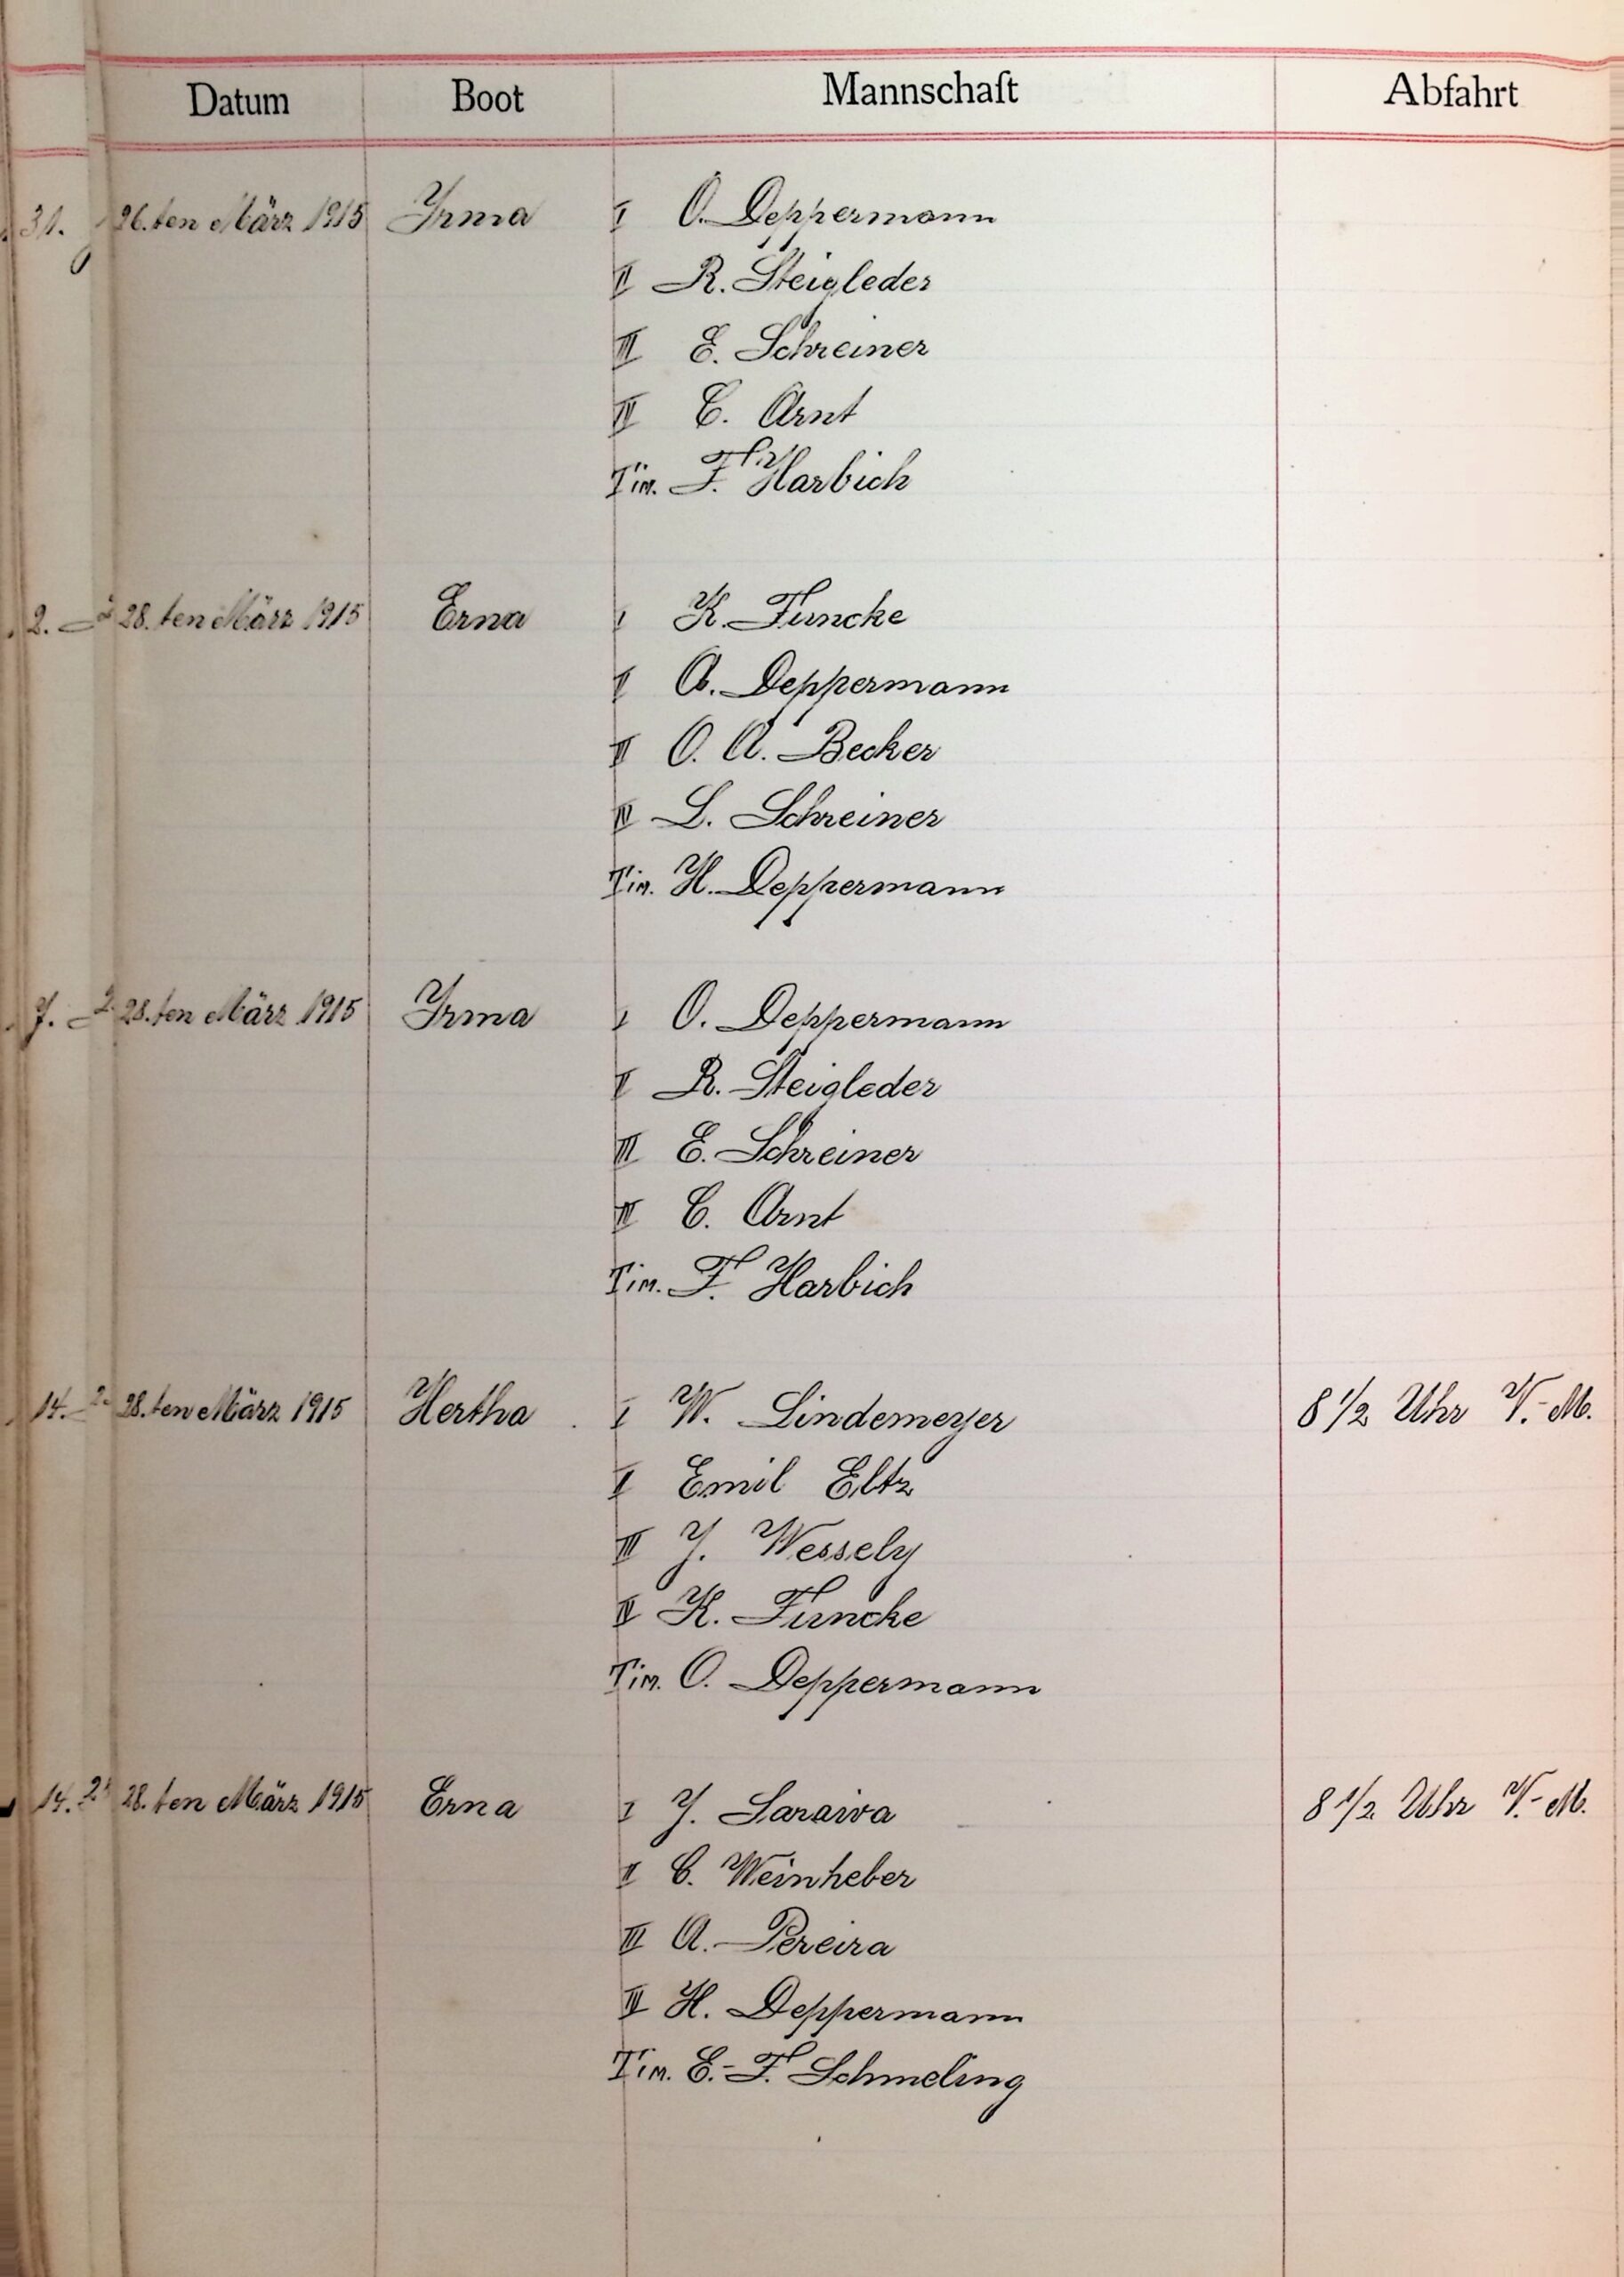 Datum Boot Mannschaft Abfahrt
31. 26.ten März 1915 Irma I O. Deppermann
II R. Steigleder
III E. Schreiner
IV C. Arnt
Tim. F. Harbich
2. 28.ten März 1915 Erna I K. Funcke
II A. Deppermann
III O. A. Becker
IV L. Schreiner
Tim. H. Deppermann
7. 28.ten März 1915 Irma I O. Deppermann
II R. Steigleder
III E. Schreiner
IV C. Arnt
Tim. F. Harbich
14. 28.ten März 1915 Hertha I W. Lindemeyer 8 1/2 Uhr V.-M.
II Emil Eltz
III J. Wessely
IV K. Funcke
Tim. O. Deppermann
14. 28.ten März 1915 Erna I J. Saraiva 8 1/2 Uhr V.-M.
II C. Weinheber
III A. Pereira
IV H. Deppermann
Tim. E.-F. Schmeling